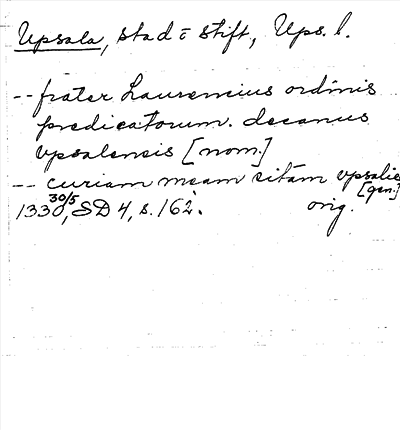 Upsala, stad o stift, Ups. l.
-- frater Laurencius ordinis
predicatorum. decanus
vpsalensis [nom.]
-- curiam meam sitam vpsalie
[gen.]
1330 30/5, SD 4, s. 162. orig.